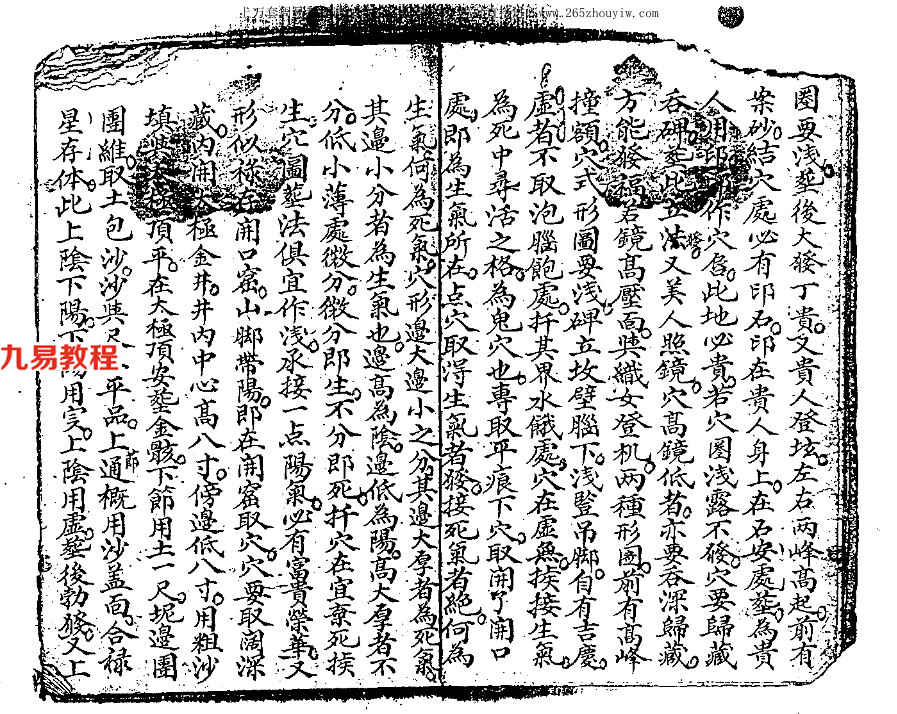 www.265zhouyiw.com
圏要浅葬後大發丁貴又貴人登垓左右兩峰髙起前有
案砂結穴處必有印石印在貴人身上在石安處葬為貴
人用 作穴 此地必貴若穴圏浅露不發穴要歸藏
吞碑葬此立法又美人照鏡穴髙鏡低者亦要吞深歸藏
方能發福若鏡髙壓面與織女登机两種形圖前有髙峰
撞額穴式形圖要浅碑立坟壁腦下浅竪吊脚自有吉慶
虚者不取泡腦飽處扦其界水餓處穴在虚無挨接生氣
為死中尋活之格為鬼穴也專取平痕下穴取開了開口
處即為生氣所在点穴取得生氣者發接死氣者絶何為
生氣何為死氣穴形邊大邊小之分其邊大厚者為死氣
其邊小分者為生氣也邊髙為陰邊低為陽髙大厚者不
分低小薄處微分微分即生不分即死扦穴在宜棄死挨
生穴圖葬法俱宜作浅承接一点陽氣必有富貴榮華又
形似禄存開口窑山脚帶陽即在開窑取穴穴要取濶深
藏内開太極金井井内中心髙八寸傍邊低八寸用粗沙
填 極頂平在太極頂安葬金骸下節用土一尺坭邊圍
圑維取土包沙沙與 平品上節通概用沙盖面合禄
星存体此上陰下陽下陽用実上陰用虚葬後勃發又上
九易教程